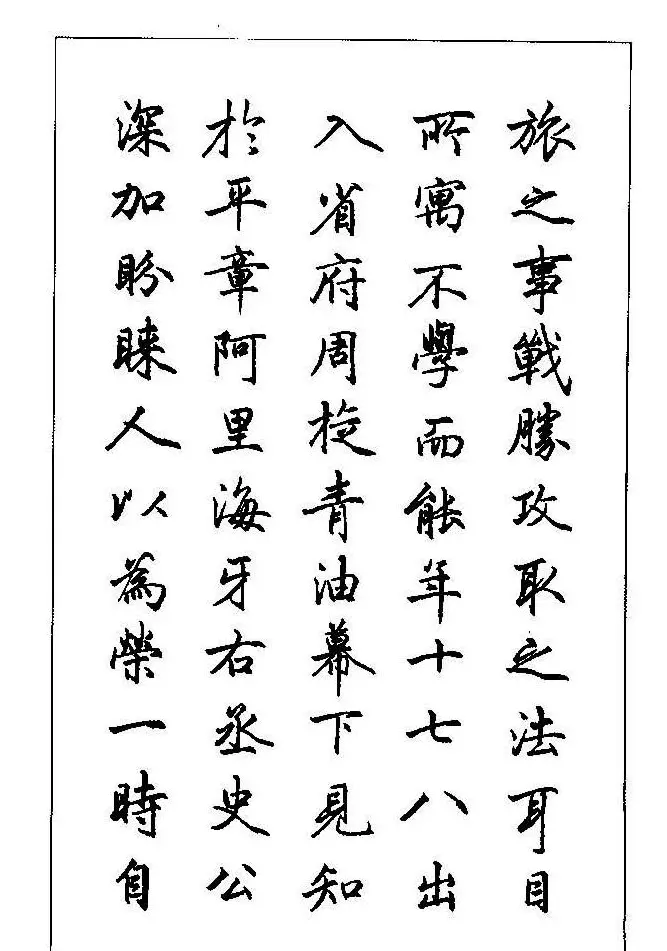 旅之事戰勝攻取之法耳目
所寓不學而能年十七八出
入省府周旋青油幕下見知
於平章阿里海牙右丞史公
深加盼睞人以為榮一時自